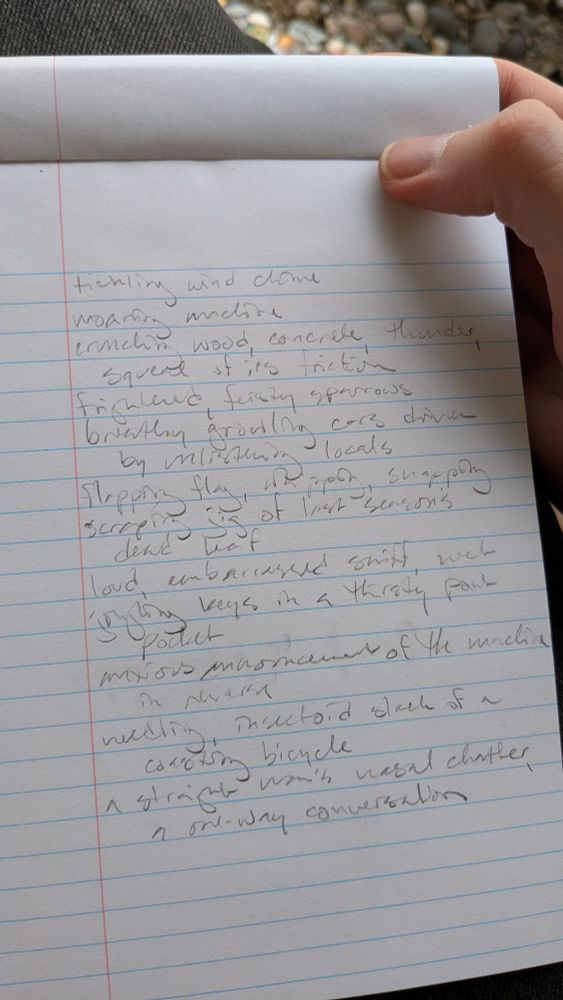 tickling wind chime
moaning machine
crunching wood, concrete, thunder,
squeal of its friction
frightened, feisty sparrows
breathy growling cars driven
by unlistening locals
flapping flag, whipping, snapping
scraping jig of last seasons
dead leaf
loud, embarrassed sniff, wet
jingling keys in a thirsty pant
pocket
anxious announcement of the machine
in reverse
needling, insectoid clack of a
coasting bicycle
a straight man's nasal chatter,
a one-way conversation